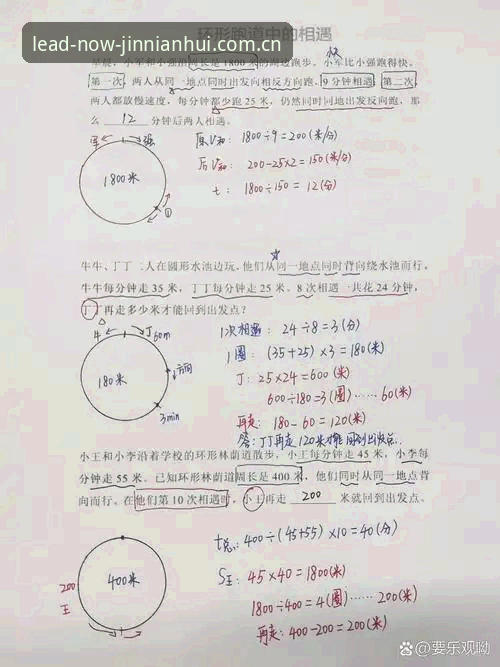 环形跑道中的相遇
lead-now-jinnianhui.com.cn
早晨，小军和小强沿周长是1800米的湖边跑步。小军比小强跑得快。
快
第一次，两人从同一地点同时出发向相反方向跑，9分钟相遇，第二次，
两人都放慢速度，每分钟都少跑25米，仍然同时同地出发反向跑，那
么 12 分钟后两人相遇。
军 强
原V和: 1800÷9=200(米/分)
后V和: 200-25×2=150(米/分)
t: 1800÷150=12(分)
1800米
①
牛牛、丁丁二人在圆形水池边玩，他们从同一地点同时背向绕水池而行，
牛牛每分钟走35米，丁丁每分钟走25米。8次相遇一共花24分钟，
丁丁再走多少米才能回到出发点？
牛 丁 60m
180米
方向
3min
1次相遇: 24÷8=3(分)
1圈: (35+25)×3=180(米)
丁: 25×24=600(米)
600÷180=3(圈)……60(米)
再走: 180-60=120(米)
答:丁丁再走120米才能回到出发点.
小王和小李沿着学校的环形林荫道散步，小王每分钟走45米，小李每
分钟走55米。已知环形林荫道周长是400米，他们同时从同一地点背
向而行。在他们第10次相遇时，小王再走 200 米就回到出发点。
400米
200
王
t总: 400÷(45+55)×10=40(分)
S王: 45×40=1800(米)
1800÷400=4(圈)……200(米)
再走: 400-200=200(米)
@要乐观呦